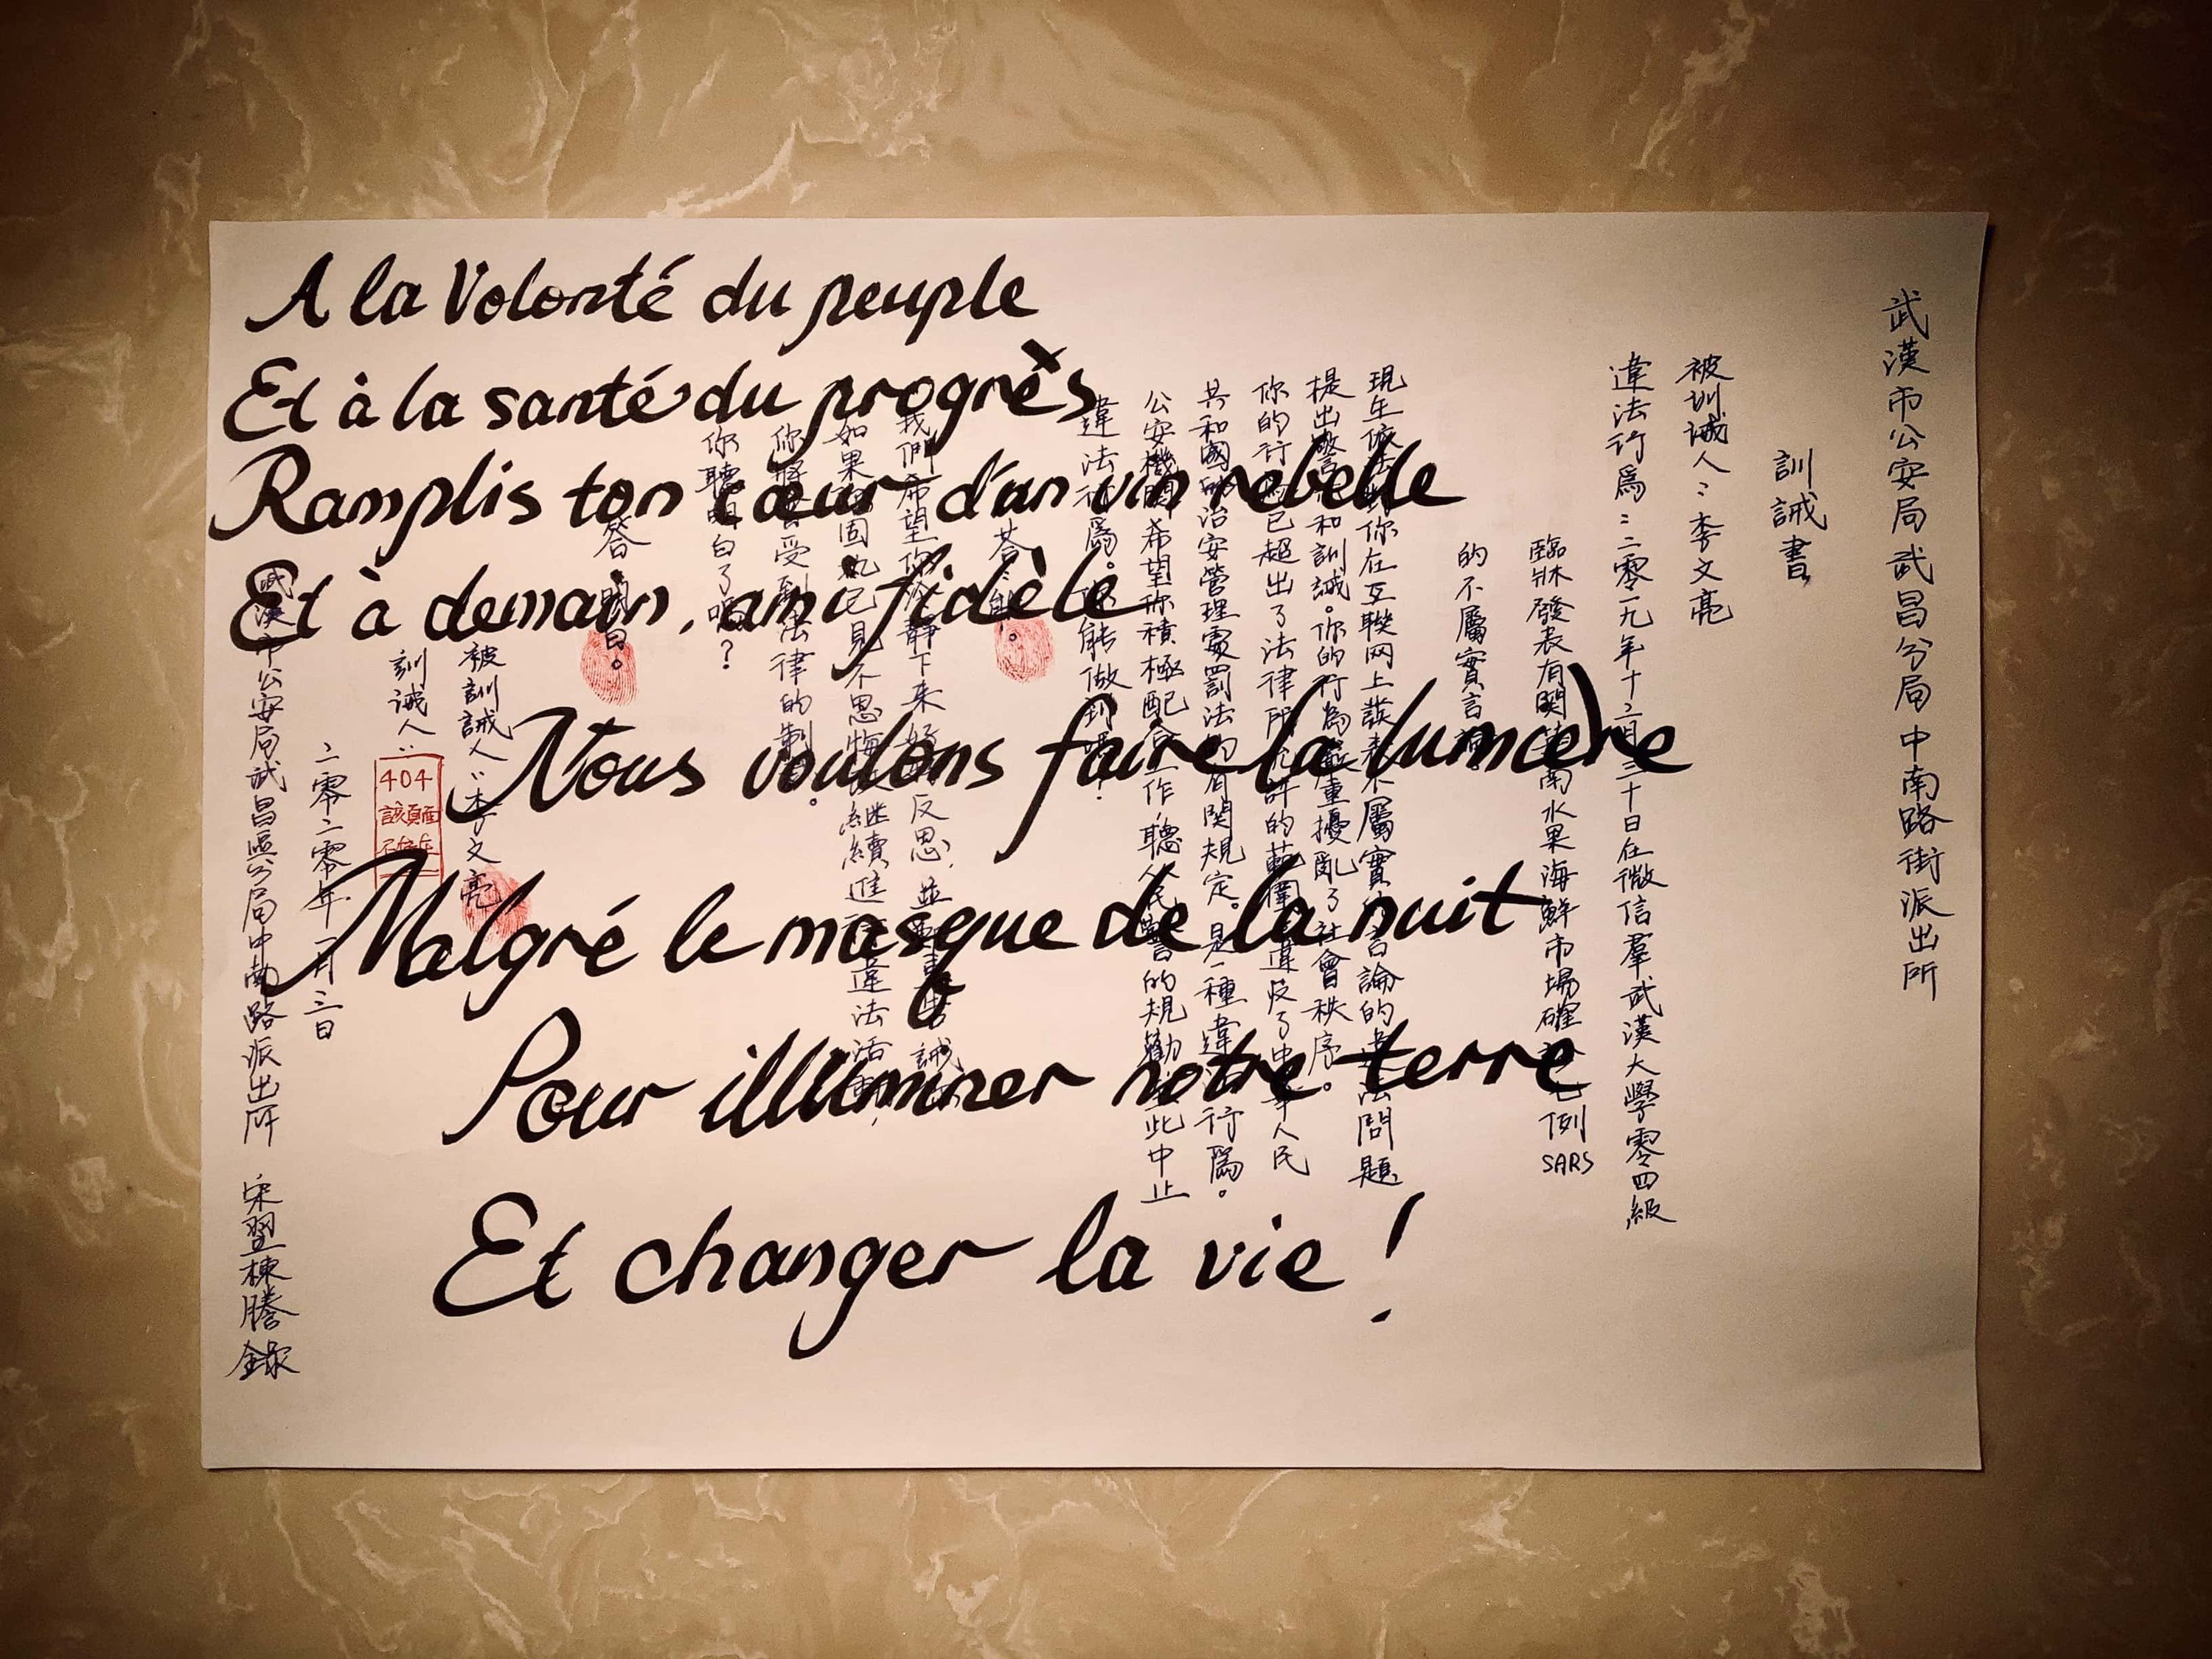 A la Volonté du peuple
Et à la santé du progrès
Ramplis ton cœur d'un vin rebelle
Et à demain, ami fidèle
Nous voulons faire la lumière
Malgré le masque de la nuit
Pour illuminer notre terre
Et changer la vie !
武漢市公安局武昌分局中南路街派出所
訓誡書
被訓誡人：李文亮
違法行爲：二零一九年十二月三十日在微信羣武漢大學零四級
臨牀發表有關 南水果海鮮市場確 例SARS
的不屬實言
現 你在互聯网上 屬實 言論的 法問題
提出警 和訓誡。你的行為 重擾亂了社會秩序。
你的行 已超出了法律所 許的範圍 違反了中 人民
共和國 治安管理處罰法 有関規定。是一種違 行爲。
公安機關希望你積極配合工作，聽 人民警 的規勸 此中止
違法行爲。 能做到
答：
我們希望你 靜下来好 反思，並 誡
如果 固執己見，不思悔 継續進 違法活
你將 受到法律的制 。
你聽明白了嗎？
答：明白。
被訓誡人：李文亮
訓誡人：
404
該頁面
二零二零年一月三日
武漢市公安局武昌區分局中南路派出所 宋翌棟謄錄